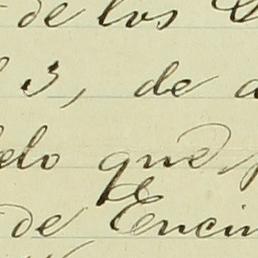 de los
3, de
elo que
de Encin